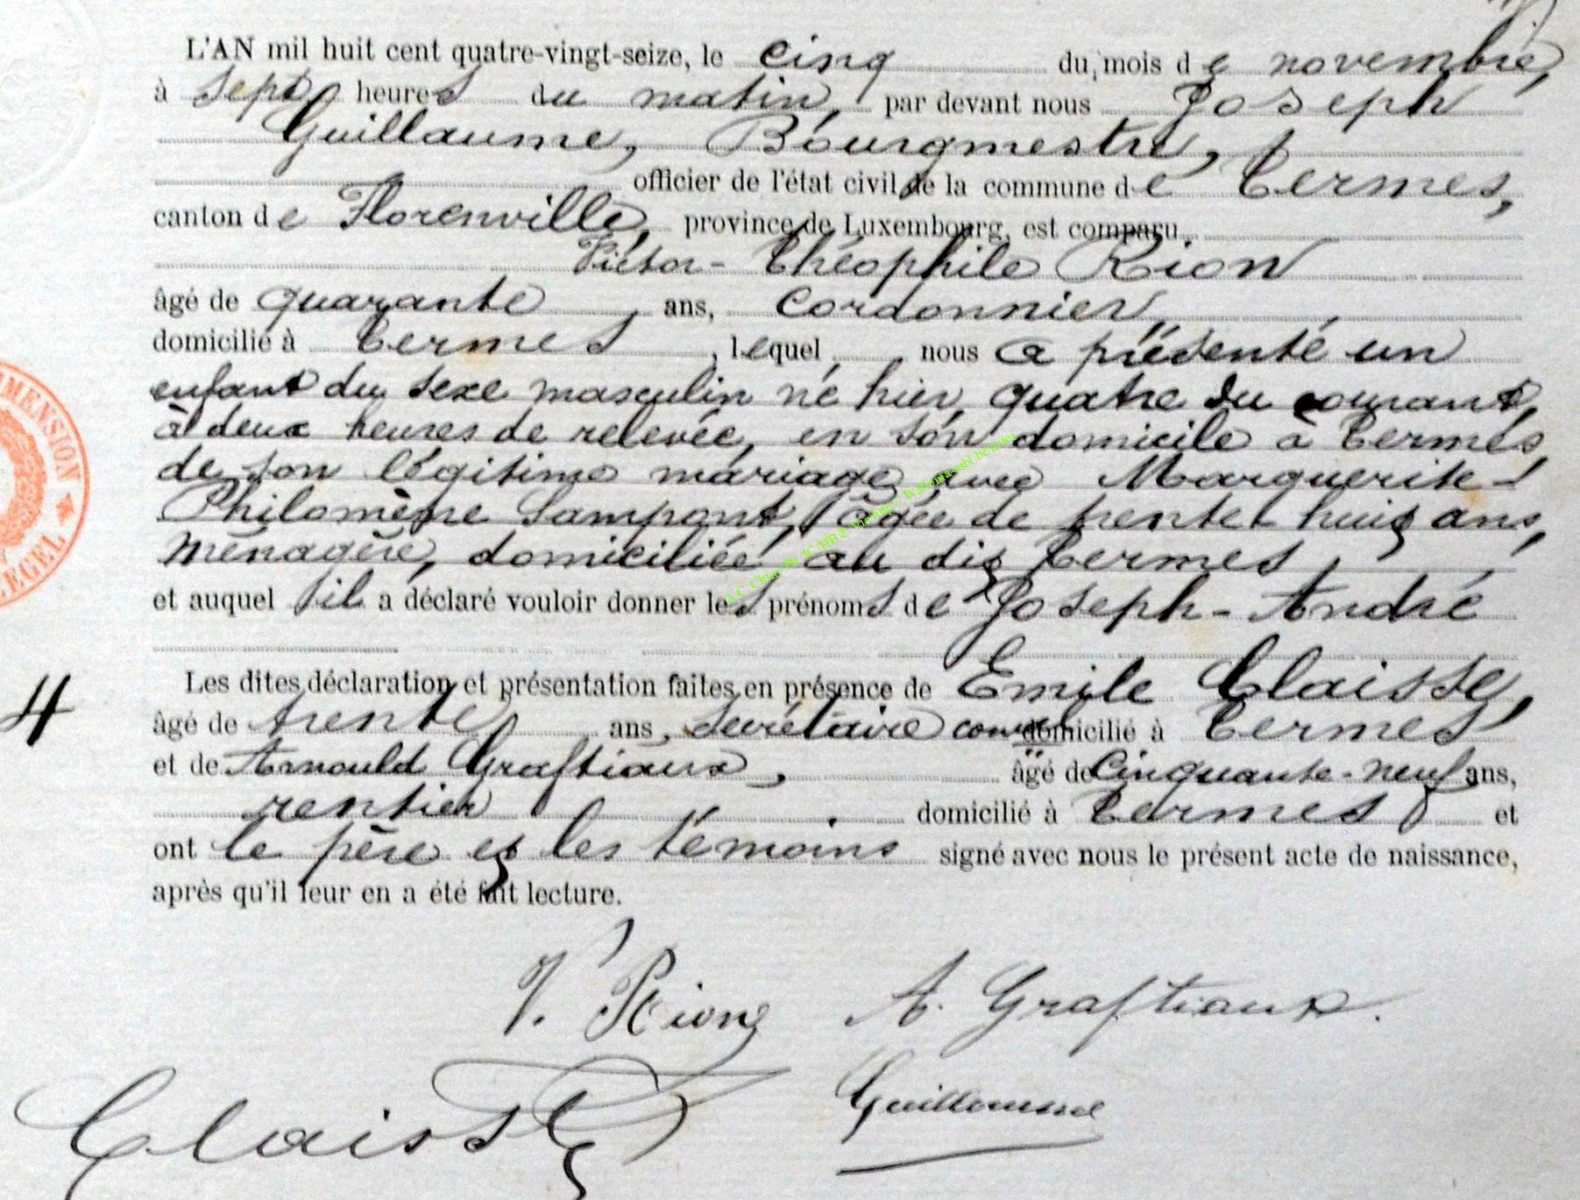 L'AN mil huit cent quatre-vingt-seize, le cinq du mois de novembre,
à sept heures du matin, par devant nous Joseph
Guillaume, Bourgmestre,
officier de l'état civil de la commune de Termes,
canton de Florenville, province de Luxembourg, est comparu
Victor-Théophile Rion
âgé de quarante ans, cordonnier,
domicilié à Termes, lequel nous a présenté un
enfant du sexe masculin né hier, quatre du courant,
à deux heures de relevée, en son domicile à Termes,
de son légitime mariage avec Marguerite-
Philomène Lampont, âgée de trente huit ans,
ménagère, domiciliée au dit Termes,
et auquel il a déclaré vouloir donner les prénoms de Joseph-André
Les dites déclaration et présentation faites en présence de Emile Claisse,
4
âgé de trente ans, secrétaire domicilié à Termes
et de Arnould Graftiaux, âgé de cinquante-neuf ans,
rentier domicilié à Termes et
ont le père et les témoins signé avec nous le présent acte de naissance,
après qu'il leur en a été fait lecture.
V. Rion A. Graftiaux.
Claisse Guillaume